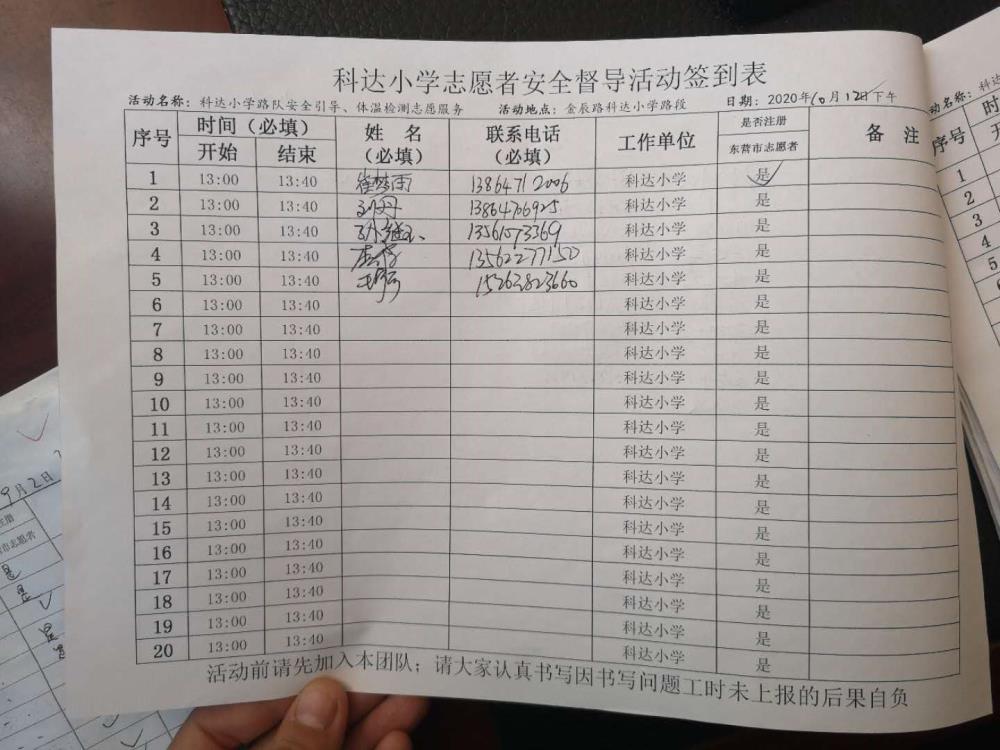 科达小学志愿者安全督导活动签到表
活动名称：科达小学路队安全引导、体温检测志愿服务 活动地点：金辰路科达小学路段 日期：2020年10月12日下午
序号 时间（必填） 姓 名（必填） 联系电话（必填） 工作单位 是否注册东营市志愿者 备 注
开始 结束
1 13:00 13:40 崔梦雨 13864712006 科达小学 是
2 13:00 13:40 刘丹 13864706925 科达小学 是
3 13:00 13:40 13561573369 科达小学 是
4 13:00 13:40 13562277150 科达小学 是
5 13:00 13:40 15263823660 科达小学 是
6 13:00 13:40 科达小学 是
7 13:00 13:40 科达小学 是
8 13:00 13:40 科达小学 是
9 13:00 13:40 科达小学 是
10 13:00 13:40 科达小学 是
11 13:00 13:40 科达小学 是
12 13:00 13:40 科达小学 是
13 13:00 13:40 科达小学 是
14 13:00 13:40 科达小学 是
15 13:00 13:40 科达小学 是
16 13:00 13:40 科达小学 是
17 13:00 13:40 科达小学 是
18 13:00 13:40 科达小学 是
19 13:00 13:40 科达小学 是
20 13:00 13:40 科达小学 是
活动前请先加入本团队；请大家认真书写因书写问题工时未上报的后果自负
9月2日
注册
市志愿者
是
是
是
是
动名称：科达
序号
1
2
3
4
5